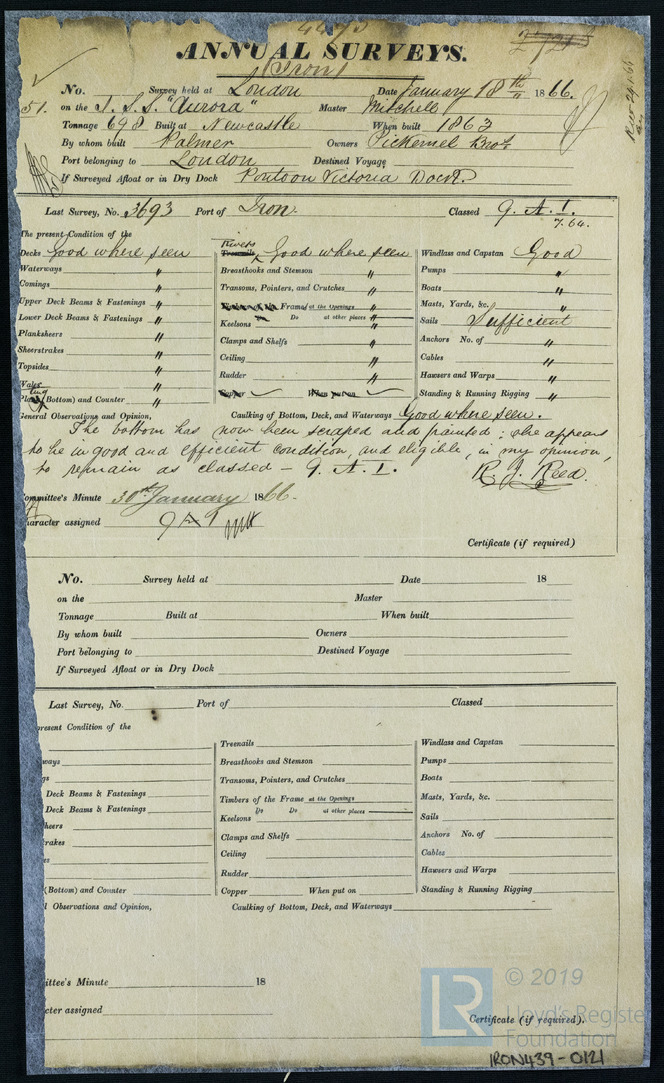 ANNUAL SURVEYS.
(Iron)
No. Survey held at London Date January 18th 1866.
51. on the I. S. S. "Aurora" Master Mitchell
Tonnage 698 Built at Newcastle When built 1863
By whom built Palmer Owners Pickernel Bros
Port belonging to London Destined Voyage
If Surveyed Afloat or in Dry Dock Pontoon Victoria Dock.
Last Survey, No. 3693 Port of Iron. Classed 9. A. 1.
7.64.
The present Condition of the
Decks Good where seen
Waterways "
Comings "
Upper Deck Beams & Fastenings "
Lower Deck Beams & Fastenings "
Planksheers "
Sheerstrakes "
Topsides "
Wales "
(Bottom) and Counter "
Rivets
Treenails Good where seen
Breasthooks and Stemson "
Transoms, Pointers, and Crutches "
Frame at the Openings "
Do at other places "
Keelsons "
Clamps and Shelfs "
Ceiling "
Rudder "
Copper When put on
Windlass and Capstan Good
Pumps "
Boats "
Masts, Yards, &c. "
Sails Sufficient
Anchors No. of "
Cables "
Hawsers and Warps "
Standing & Running Rigging "
General Observations and Opinion, Caulking of Bottom, Deck, and Waterways Good where seen.
The bottom has now been scraped and painted; she appears
to be in good and efficient condition, and eligible, in my opinion,
to remain as classed – 9. A. 1. R. J. Reed.
Committee's Minute 30th January 1866.
Character assigned 9 A 1
Certificate (if required)
No. Survey held at Date 18
on the Master
Tonnage Built at When built
By whom built Owners
Port belonging to Destined Voyage
If Surveyed Afloat or in Dry Dock
Last Survey, No. Port of Classed
present Condition of the
ways
gs
Deck Beams & Fastenings
Deck Beams & Fastenings
heers
rakes
es
(Bottom) and Counter
Treenails
Breasthooks and Stemson
Transoms, Pointers, and Crutches
Timbers of the Frame at the Openings
Do Do at other places
Keelsons
Clamps and Shelfs
Ceiling
Rudder
Copper When put on
Windlass and Capstan
Pumps
Boats
Masts, Yards, &c.
Sails
Anchors No. of
Cables
Hawsers and Warps
Standing & Running Rigging
l Observations and Opinion, Caulking of Bottom, Deck, and Waterways
ittee's Minute 18
cter assigned
Certificate (if required).
LR © 2019
Lloyd's Register
Foundation
IRON439-0121